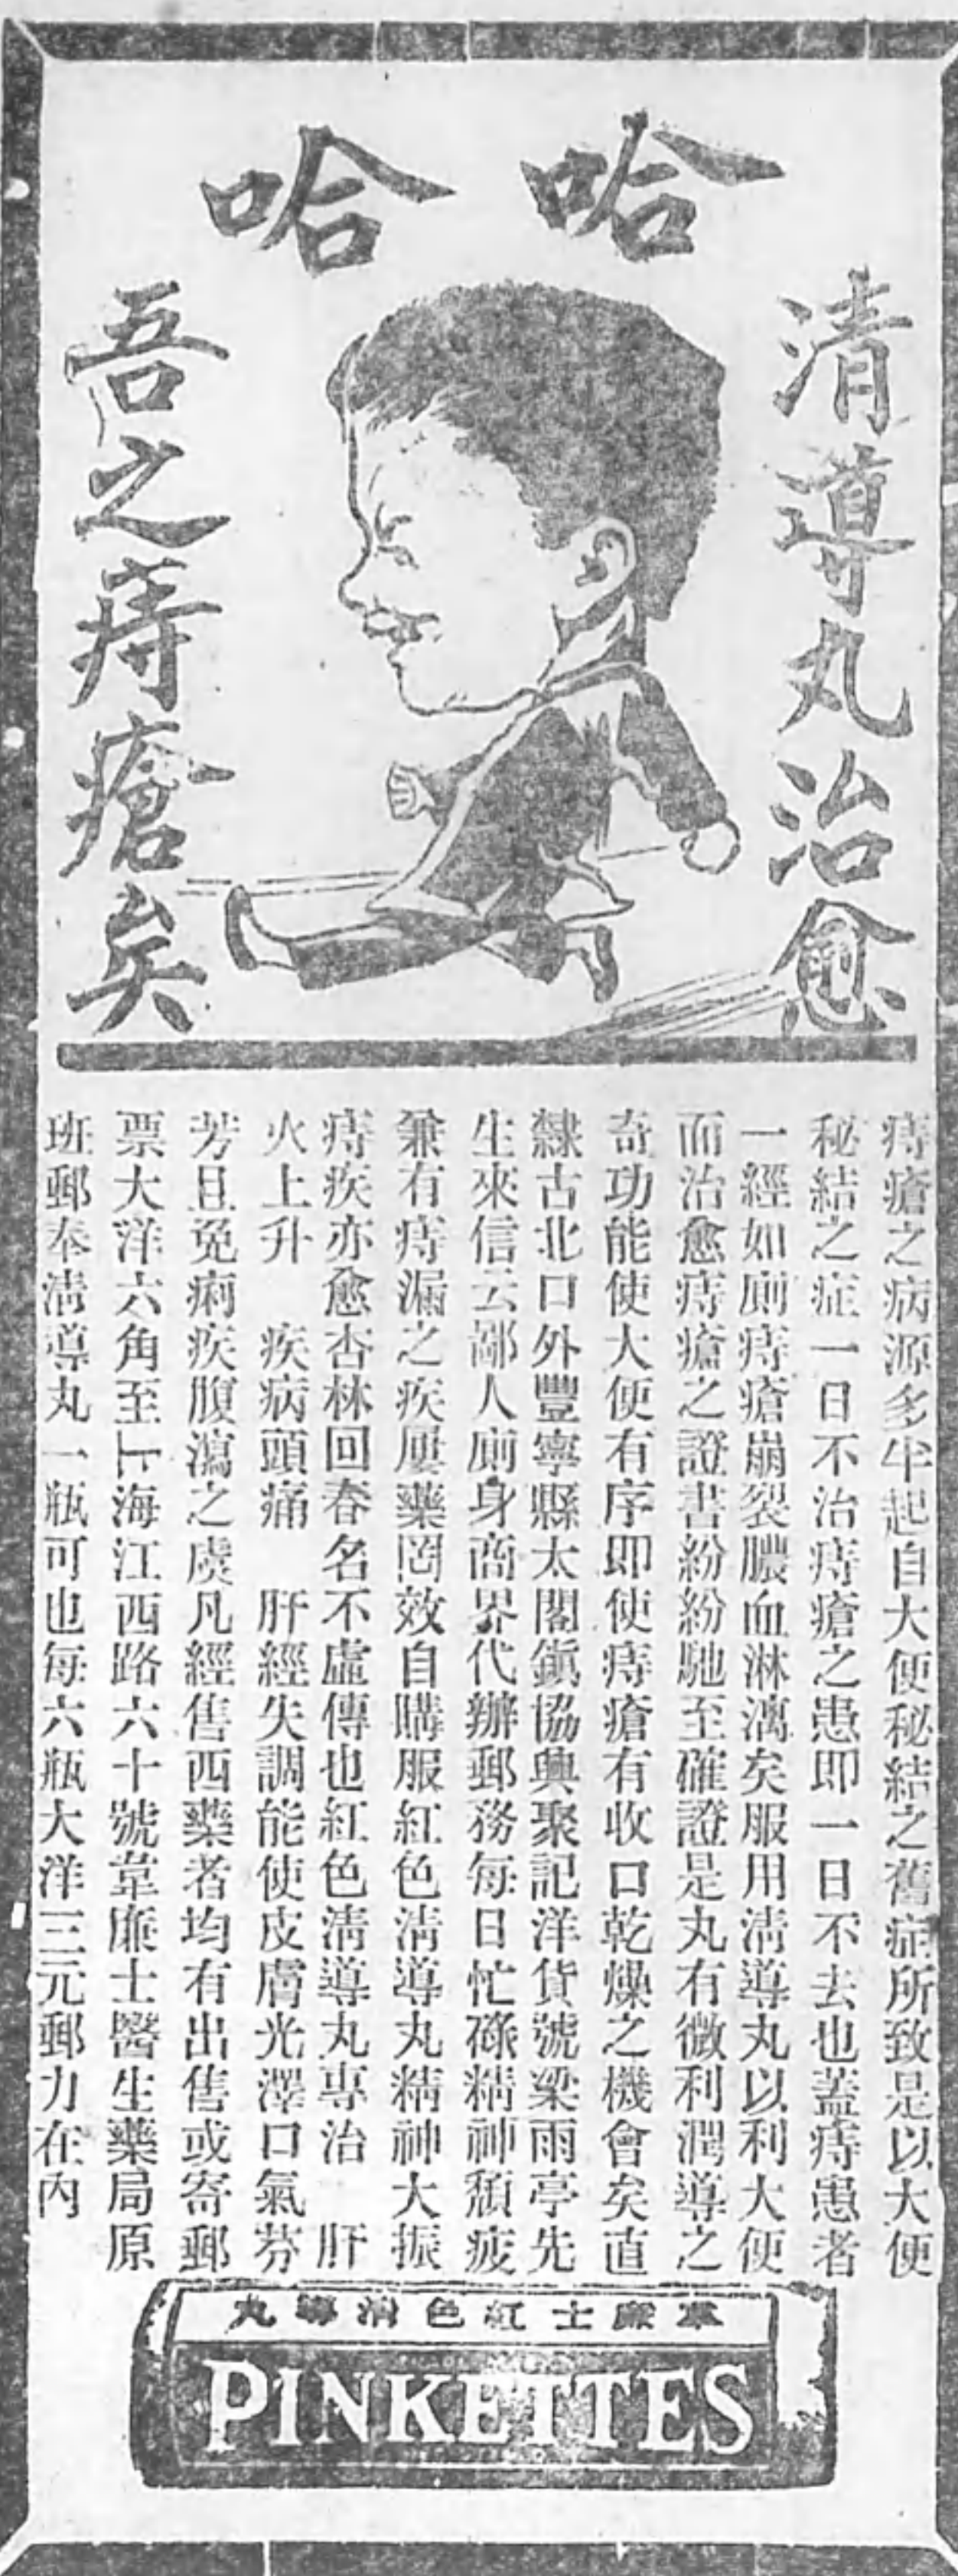 哈哈
清導丸治愈
吾之痔瘡矣
痔瘡之病源多半起自大便秘結之舊症所致是以大便
秘結之症一日不治痔瘡之患即一日不去也蓋痔患者
一經如廁痔瘡崩裂膿血淋漓矣服用清導丸以利大便
而治愈痔瘡之證書紛紛馳至確證是丸有微利潤導之
奇功能使大便有序即使痔瘡有收口乾燥之機會矣直
隸古北口外豐寧縣太閣鎭協興聚記洋貨號梁雨亭先
生來信云鄙人廁身商界代辦郵務每日忙碌精神頹疲
兼有痔漏之疾屢藥罔效自購服紅色清導丸精神大振
痔疾亦愈杏林回春名不虛傳也紅色清導丸專治 肝
火上升 疾病頭痛 肝經失調能使皮膚光澤口氣芬
芳且免痢疾腹瀉之虞凡經售西藥者均有出售或寄郵
票大洋六角至上海江西路六十號韋廉士醫生藥局原
班郵奉清導丸一瓶可也每六瓶大洋三元郵力在內
韋廉士紅色清導丸
PINKETTES